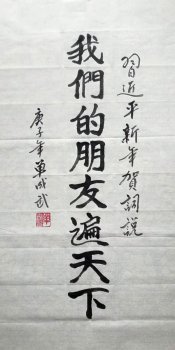 習近平新年賀詞説
我們的朋友遍天下
庚子年單成武